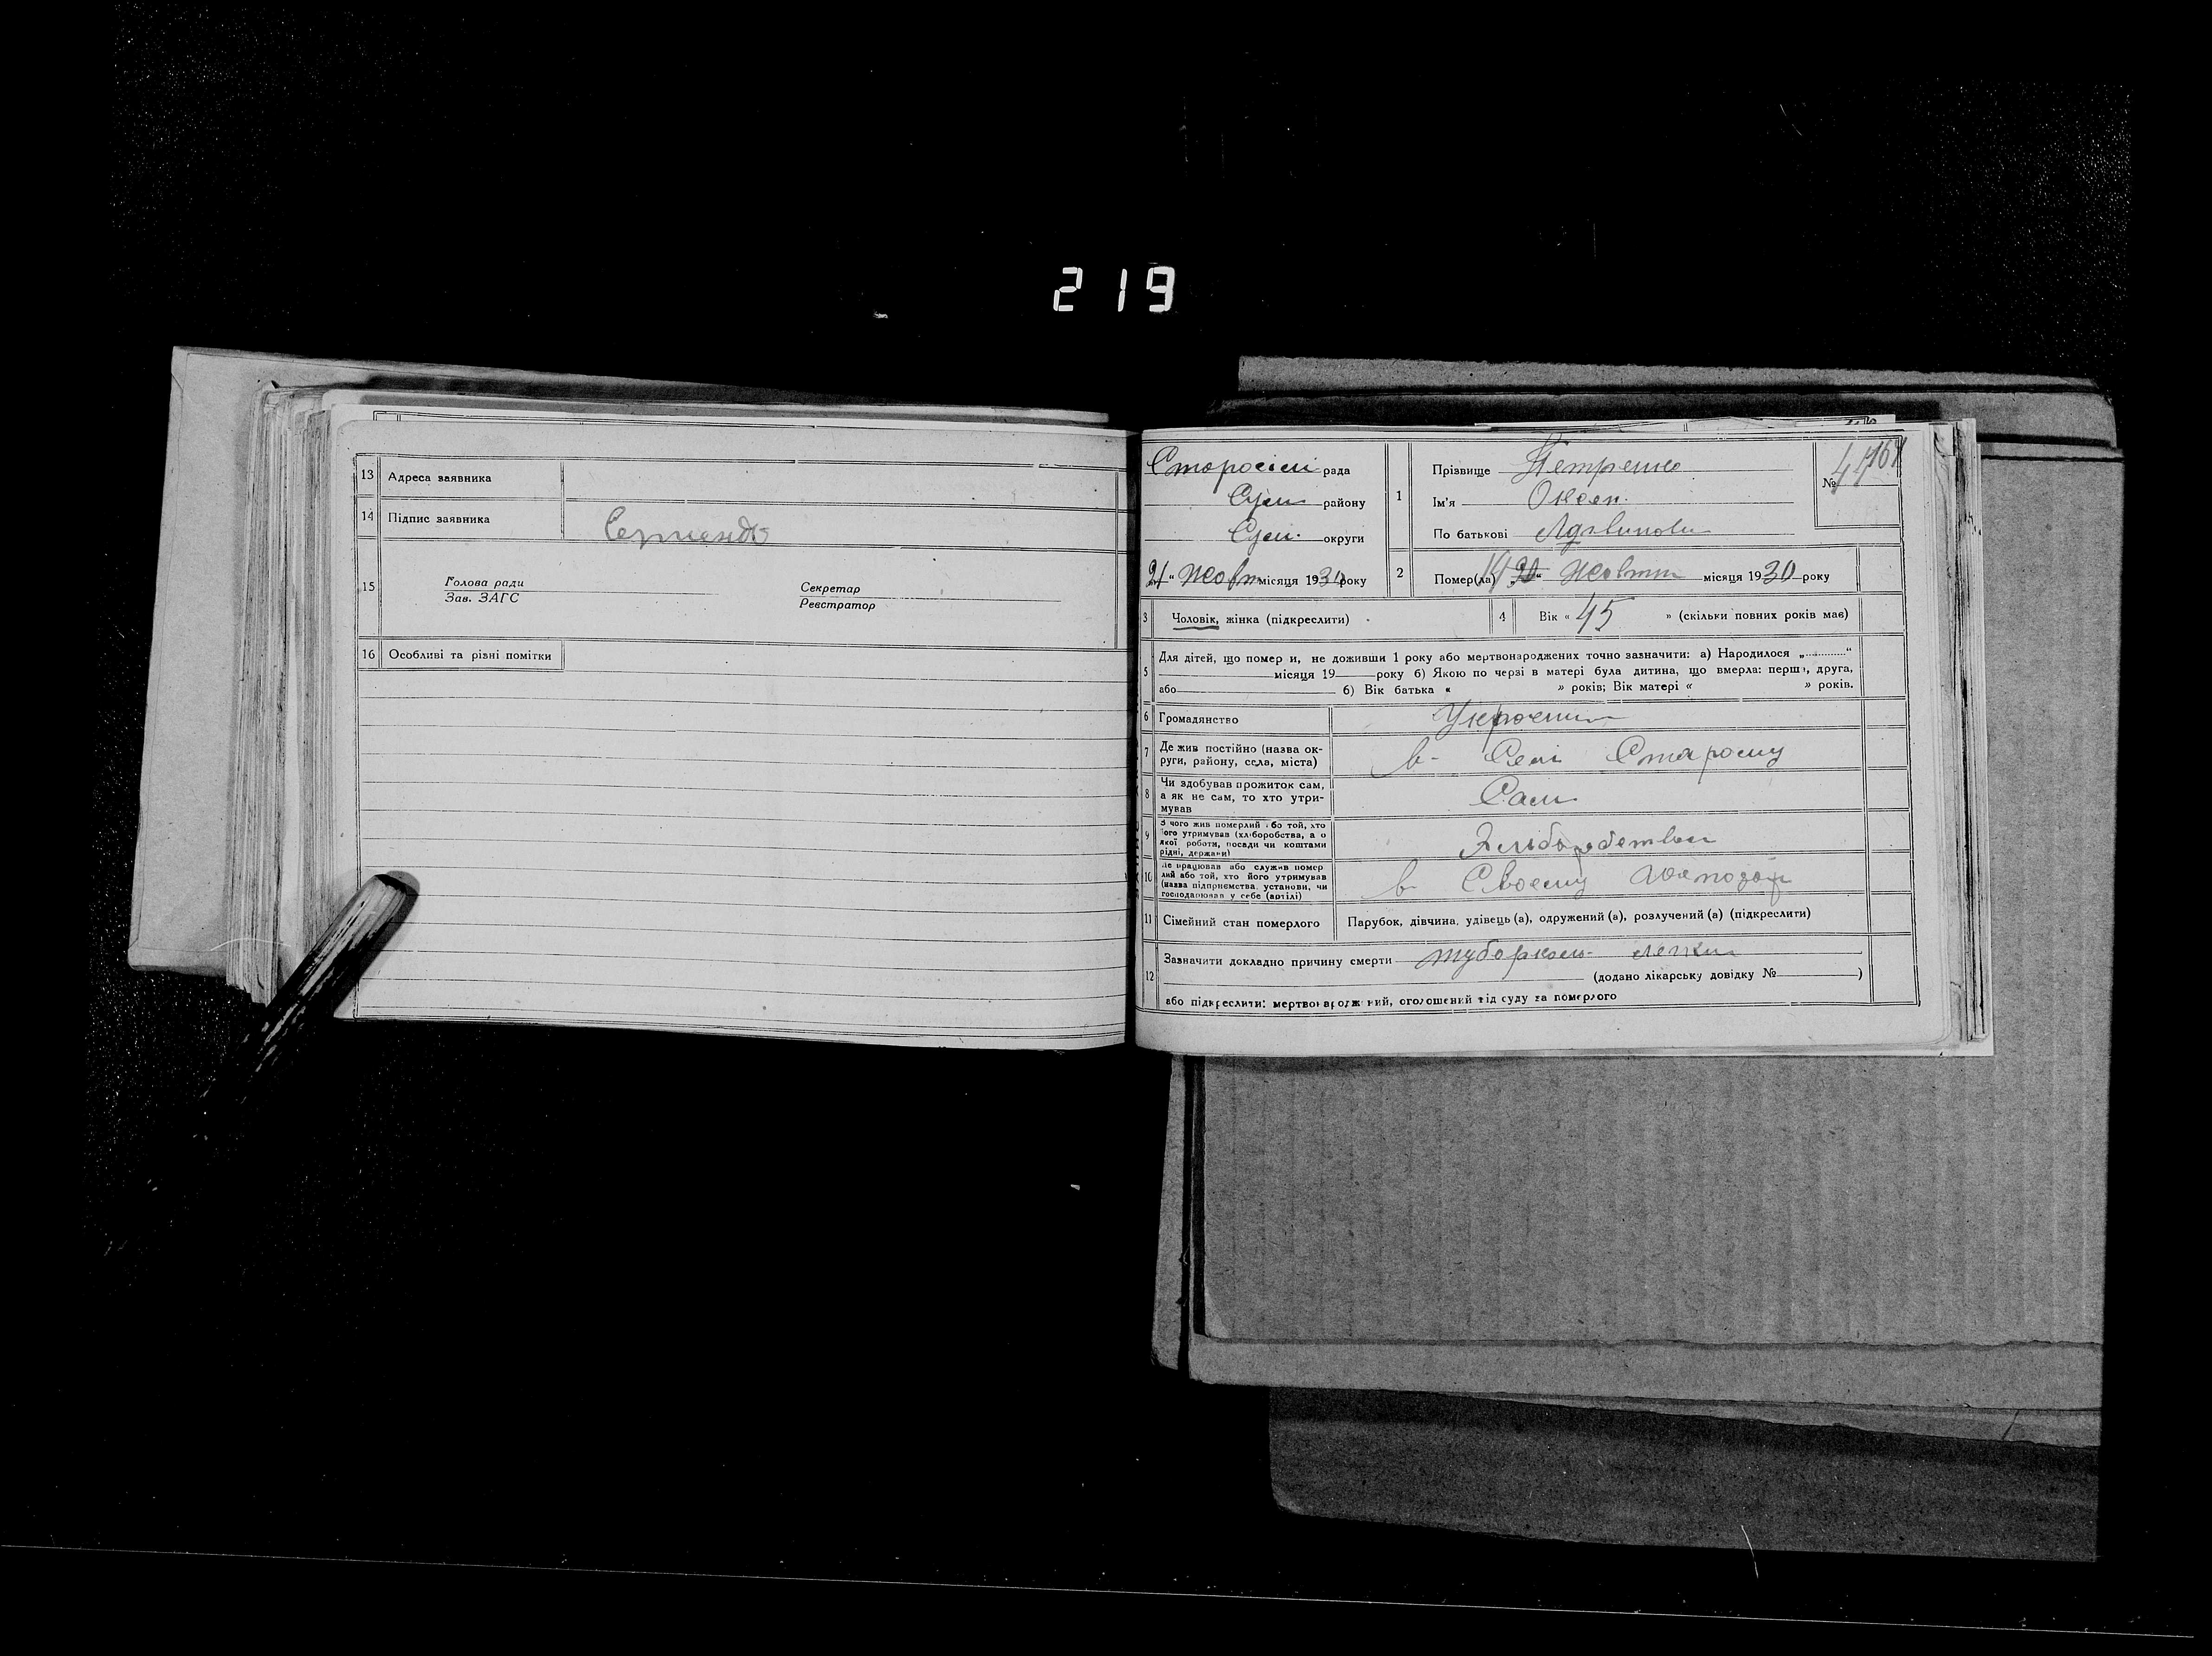 219
13 Адреса заявника
14 Підпис заявника
15 Голова ради Секретар
Зав. ЗАГС Реєстратор
16 Особливі та різні помітки
Старосіл рада
Сум району
Сум. округи
21 " Жовт місяця 1930 року
1 Прізвище Петренко
Ім'я
По батькові
№ 44
2 Помер(ла) 14 „20" Жовтн місяця 1930 року
3 Чоловік, жінка (підкреслити)
4 Вік « 45 » (скільки повних років має)
5 Для дітей, що помер и, не доживши 1 року або мертвонароджених точно зазначити: а) Народилося „ "
місяця 19 року б) Якою по черзі в матері була дитина, що вмерла: перша, друга,
або б) Вік батька « » років; Вік матері « » років.
6 Громадянство Украєнин
7 Де жив постійно (назва ок-
руги, району, села, міста) в- Селі Старому
8 Чи здобував прожиток сам,
а як не сам, то хто утри-
мував Сам
9 З чого жив померлий або той, хто
його утримував (хліборобства, а о
якої роботи, посади чи коштами
рідні, держави)
10 Де працював або служив помер
лий або той, хто його утримував
(назва підприємства, установи, чи
господарював у себе (артілі) в Своему
11 Сімейний стан померлого Парубок, дівчина, удівець (а), одружений (а), розлучений (а) (підкреслити)
12 Зазначити докладно причину смерти
(додано лікарську довідку № )
або підкреслити: мертвонароджений, оголошений від суду за померлого